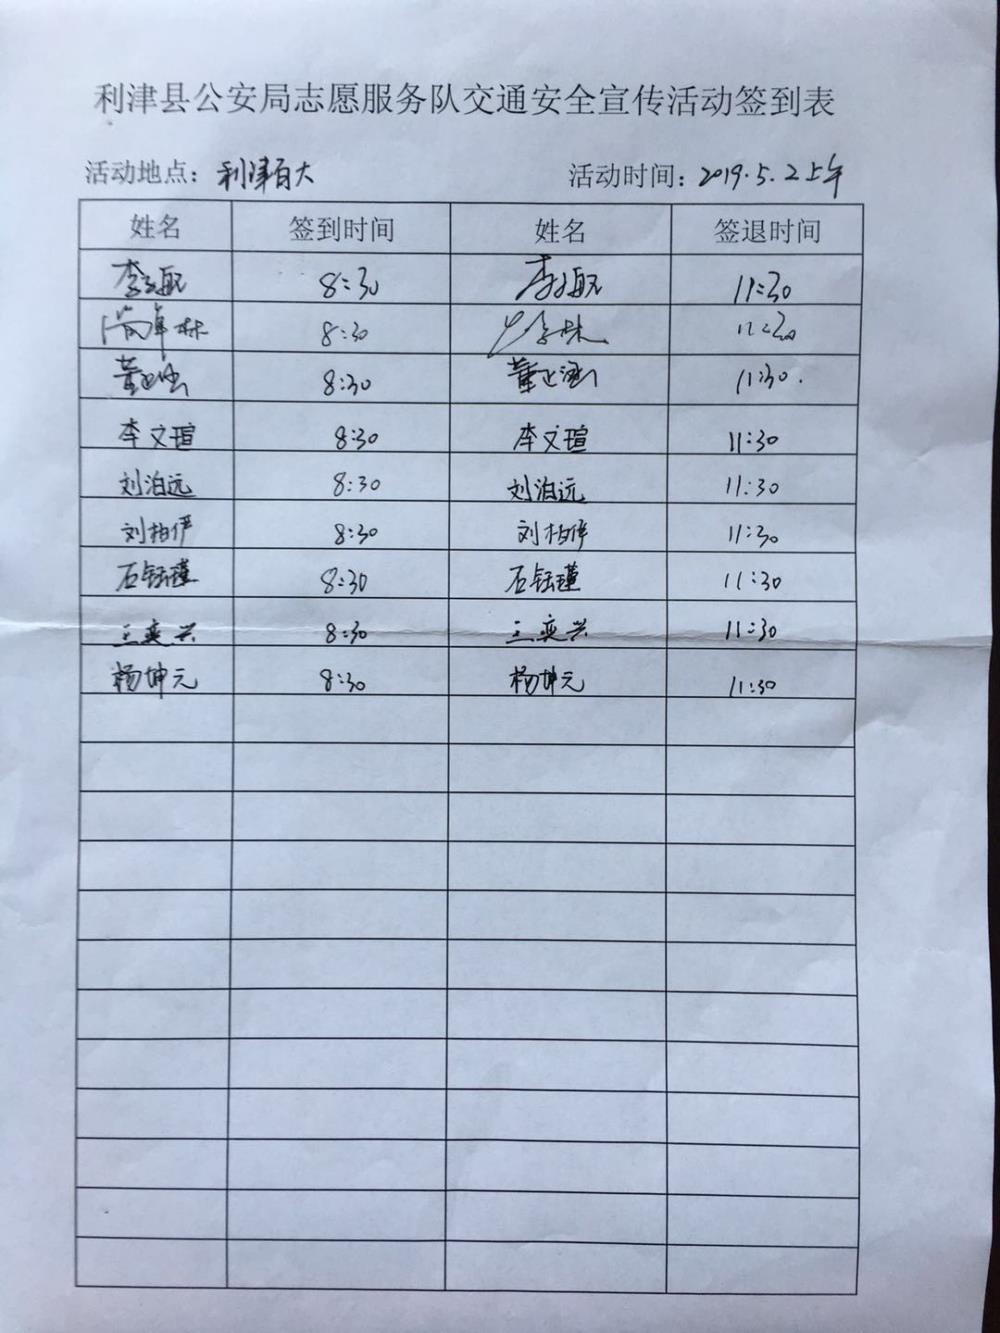 利津县公安局志愿服务队交通安全宣传活动签到表
活动地点：利津百大 活动时间：2019.5.2上午
姓名 签到时间 姓名 签退时间
8:30 11:30
8:30
董正涵 8:30 董正涵 11:30.
李文瑄 8:30 李文瑄 11:30
刘泊远 8:30 刘泊远 11:30
刘柏伊 8:30 11:30
石钰瑾 8:30 石钰瑾 11:30
王奕兴 8:30 王奕兴 11:30
杨坤元 8:30 杨坤元 11:30